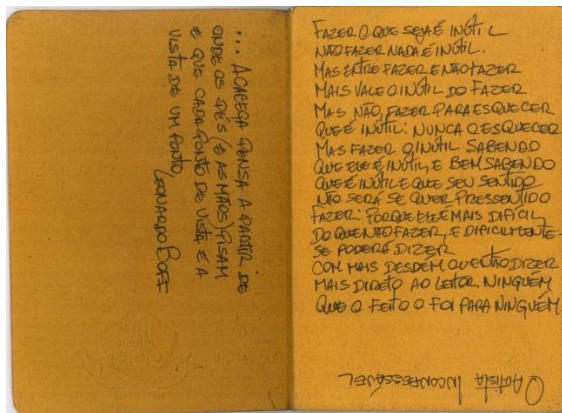 ... A CABEÇA PENSA A PARTIR DE
ONDE OS PÉS (E AS MÃOS) PISAM
E QUE CADA PONTO DE VISTA É A
VISTA DE UM PONTO,
LEONARDO BOFF
FAZER O QUE SEJA É INÚTIL
NÃO FAZER NADA É INÚTIL.
MAS ENTRE FAZER E NÃO FAZER
MAIS VALE O INÚTIL DO FAZER
MAS NÃO, FAZER PARA ESQUECER
QUE É INÚTIL: NUNCA O ESQUECER
MAS FAZER O INÚTIL SABENDO
QUE ELE É INÚTIL, E BEM SABENDO
QUE É INÚTIL E QUE SEU SENTIDO
NÃO SERÁ SE QUER PRESSENTIDO
FAZER: PORQUE ELE É MAIS DIFÍCIL
DO QUE NÃO FAZER, E DIFICILMENTE-
SE PODERÁ DIZER
COM MAIS DESDEM, OU ENTÃO DIZER
MAIS DIRETO AO LEITOR NINGUÉM
QUE O FEITO O FOI PARA NINGUÉM.
O ARTISTA INCONFESSÁVEL